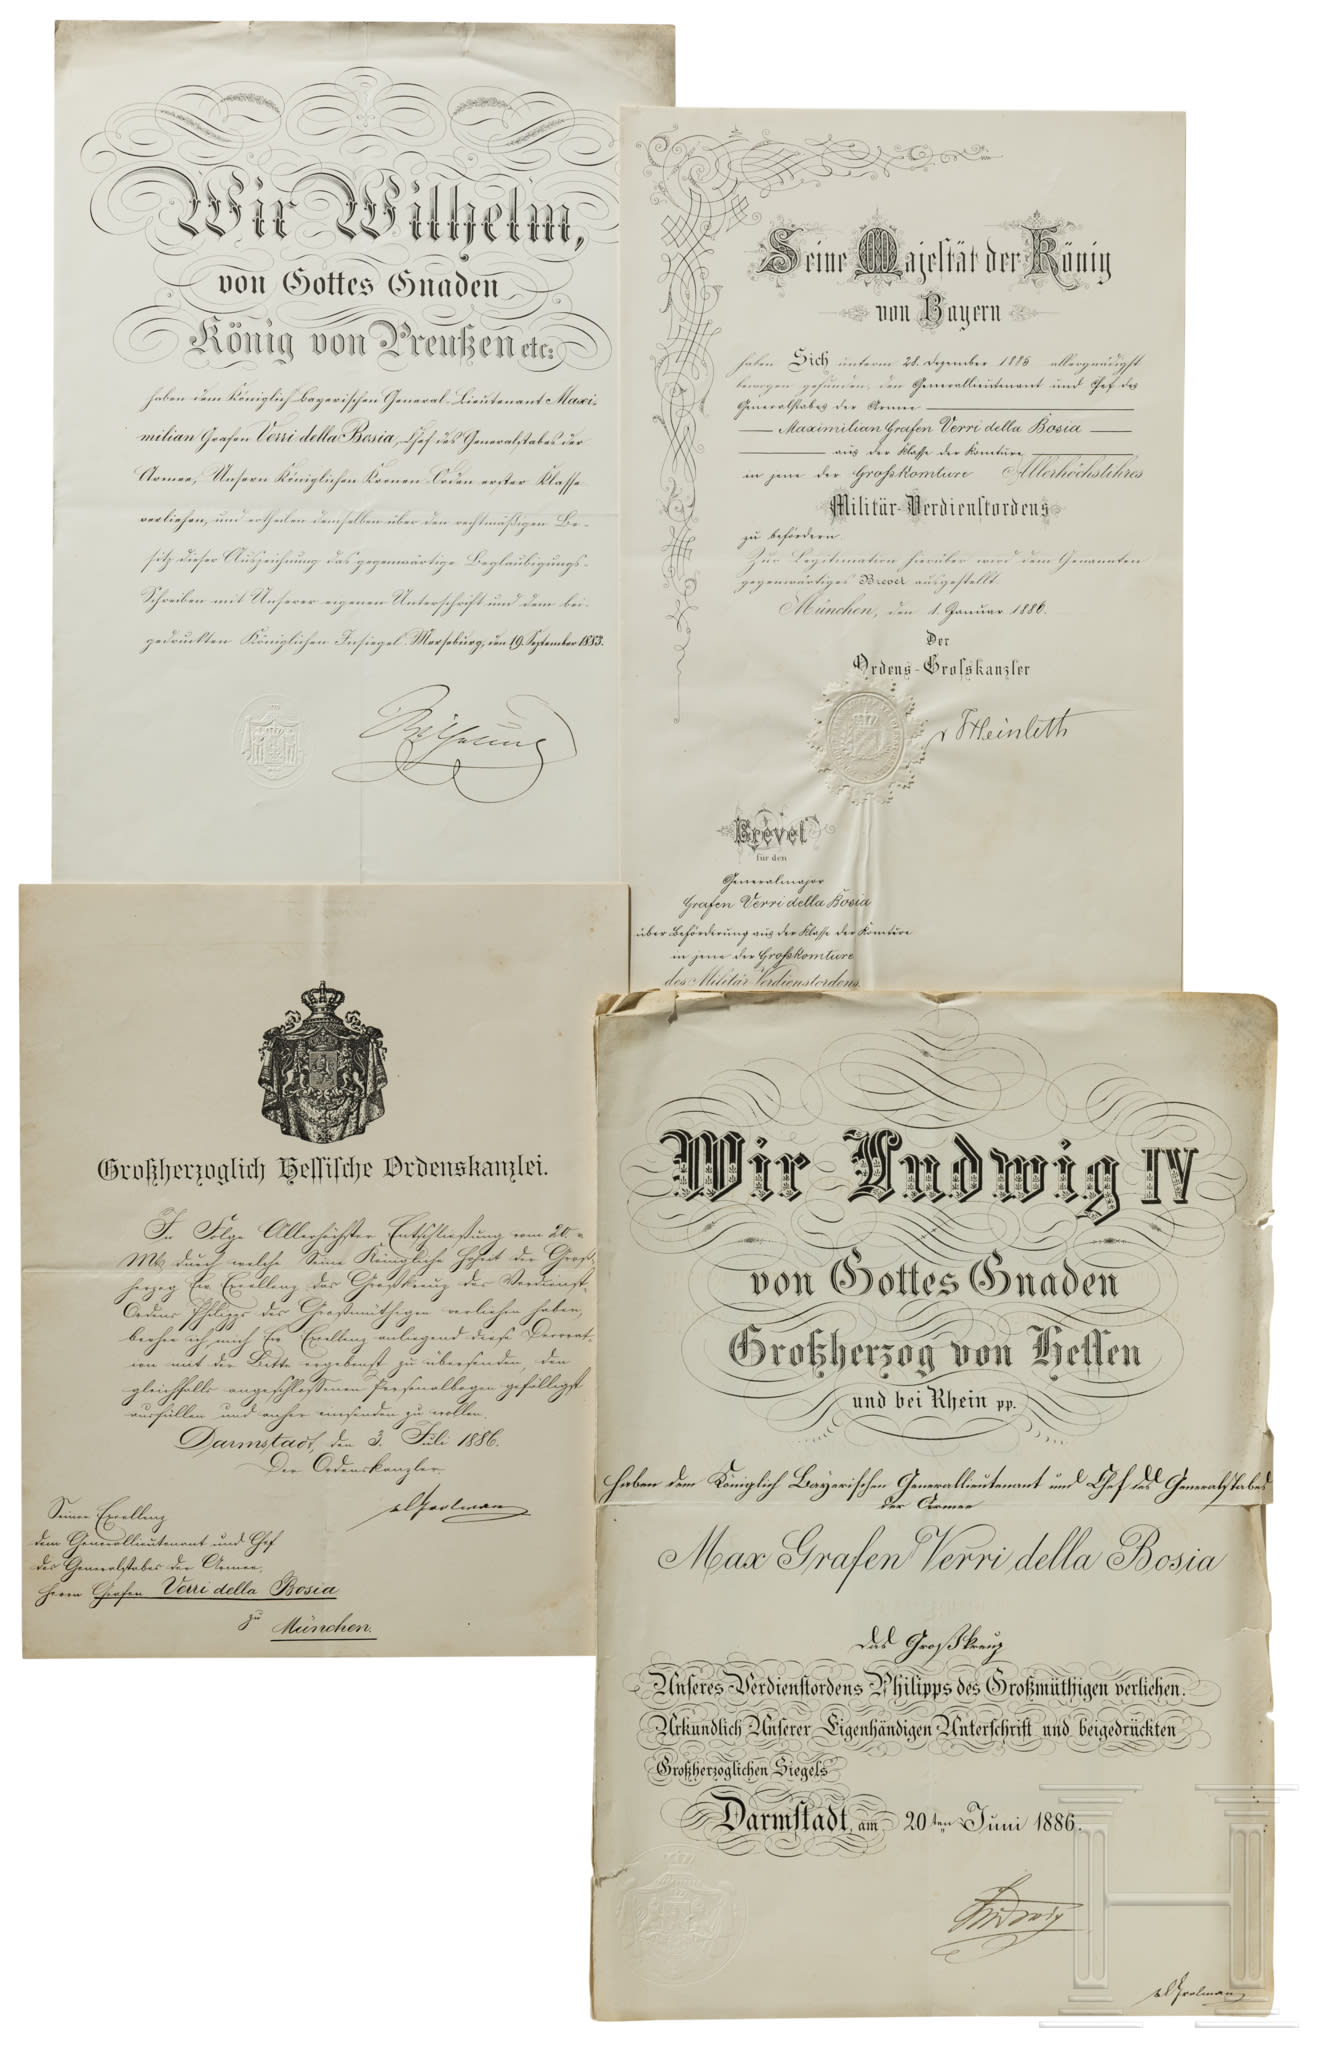 Wir Wilhelm,
von Gottes Gnaden
König von Preußen etc:
haben dem Königlich Bayerischen General-Lieutenant Maxi-
milian Grafen Verri della Bosia, Chef des Generalstabes der
Armee, Unsern Königlichen Kronen-Orden erster Klasse
verliehen, und ertheilen demselben über den rechtmäßigen Be-
sitz dieser Auszeichnung das gegenwärtige Beglaubigungs-
Schreiben mit Unserer eigenen Unterschrift und dem bei-
gedruckten Königlichen Insiegel. Merseburg, den 19. September 1883.
Wilhelm
Seine Majestät der König
von Bayern
haben Sich unterm 28. Dezember 1885 allergnädigst
bewogen gefunden, den Generallieutenant und Chef des
Generalstabes der Armee
Maximilian Grafen Verri della Bosia
aus der Klasse der Komture
in jene der Großkomture Allerhöchstihres
Militär-Verdienstordens
zu befördern.
Zur Legitimation hierüber wird dem Genannten
gegenwärtiges Brevet ausgestellt.
München, den 1. Januar 1886.
Der
Ordens-Grosskanzler
v Heinleth
Brevet
für den
Generalmajor
Grafen Verri della Bosia
über Beförderung aus der Klasse der Komture
in jene der Großkomture
des Militär Verdienstordens.
Großherzoglich Hessische Ordenskanzlei.
In Folge Allerhöchster Entschließung vom 20. v.
Mts, durch welche Seine Königliche Hoheit der Groß-
herzog Ew. Excellenz das Großkreuz des Verdienst-
Ordens Philipps des Großmüthigen verliehen haben,
beehre ich mich Ew. Excellenz anliegend diese Decorat-
ion mit der Bitte ergebenst zu übersenden, den
gleichfalls angeschlossenen Personalbogen gefälligst
ausfüllen und anher einsenden zu wollen.
Darmstadt, den 3. Juli 1886.
Der Ordenskanzler
v Grolman
Seiner Excellenz
dem Generallieutenant und Chef
des Generalstabes der Armee,
Herrn Grafen Verri della Bosia
zu
München.
Wir Ludwig IV
von Gottes Gnaden
Großherzog von Hessen
und bei Rhein pp.
haben dem Königlich Bayerischen Generallieutenant und Chef des Generalstabes
der Armee
Max Grafen Verri della Bosia
das Großkreuz
Unseres Verdienstordens Philipps des Großmüthigen verliehen.
Urkundlich Unserer Eigenhändigen Unterschrift und beigedrückten
Großherzoglichen Siegels
Darmstadt, am 20ten Juni 1886.
Ludwig
v Grolman
H